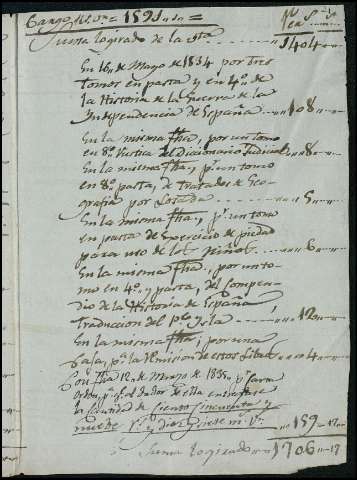 Cargo Rs. Vn = 1591 =
Rs. Vn
Suma lo girado de la Bta 1404
En 16 de Mayo de 1834 por tres
tomos en pasta y en 4º de
la Historia de la Guerra de la
Independencia de España 108
En la misma fha, por un tomo
en 8º Rustica del Diccionario Judicial 8
En la misma fha, y pr. un tomo
en 8º pasta, de Tratados de Geo-
grafia por Losada 5
En la misma fha, y pr. un tomo
en pasta de Egercicio de piedad
para uso de los Niños 6
En la misma fha, por un to-
mo en 4º y pasta, del compen-
dio de la Historia de España
Traduccion del pe. Ysla 12
En la misma fha, por una
Caja, pa. la remision de estos Libros 4
Con fha 12 de Marzo de 1835, pr. carta
orden, pa. qe. al dador de ella entregase
la cantidad de ciento cincuenta y
nueve rs. y diez y siete ms. vn. 159 17
Suma lo girado 1706 17